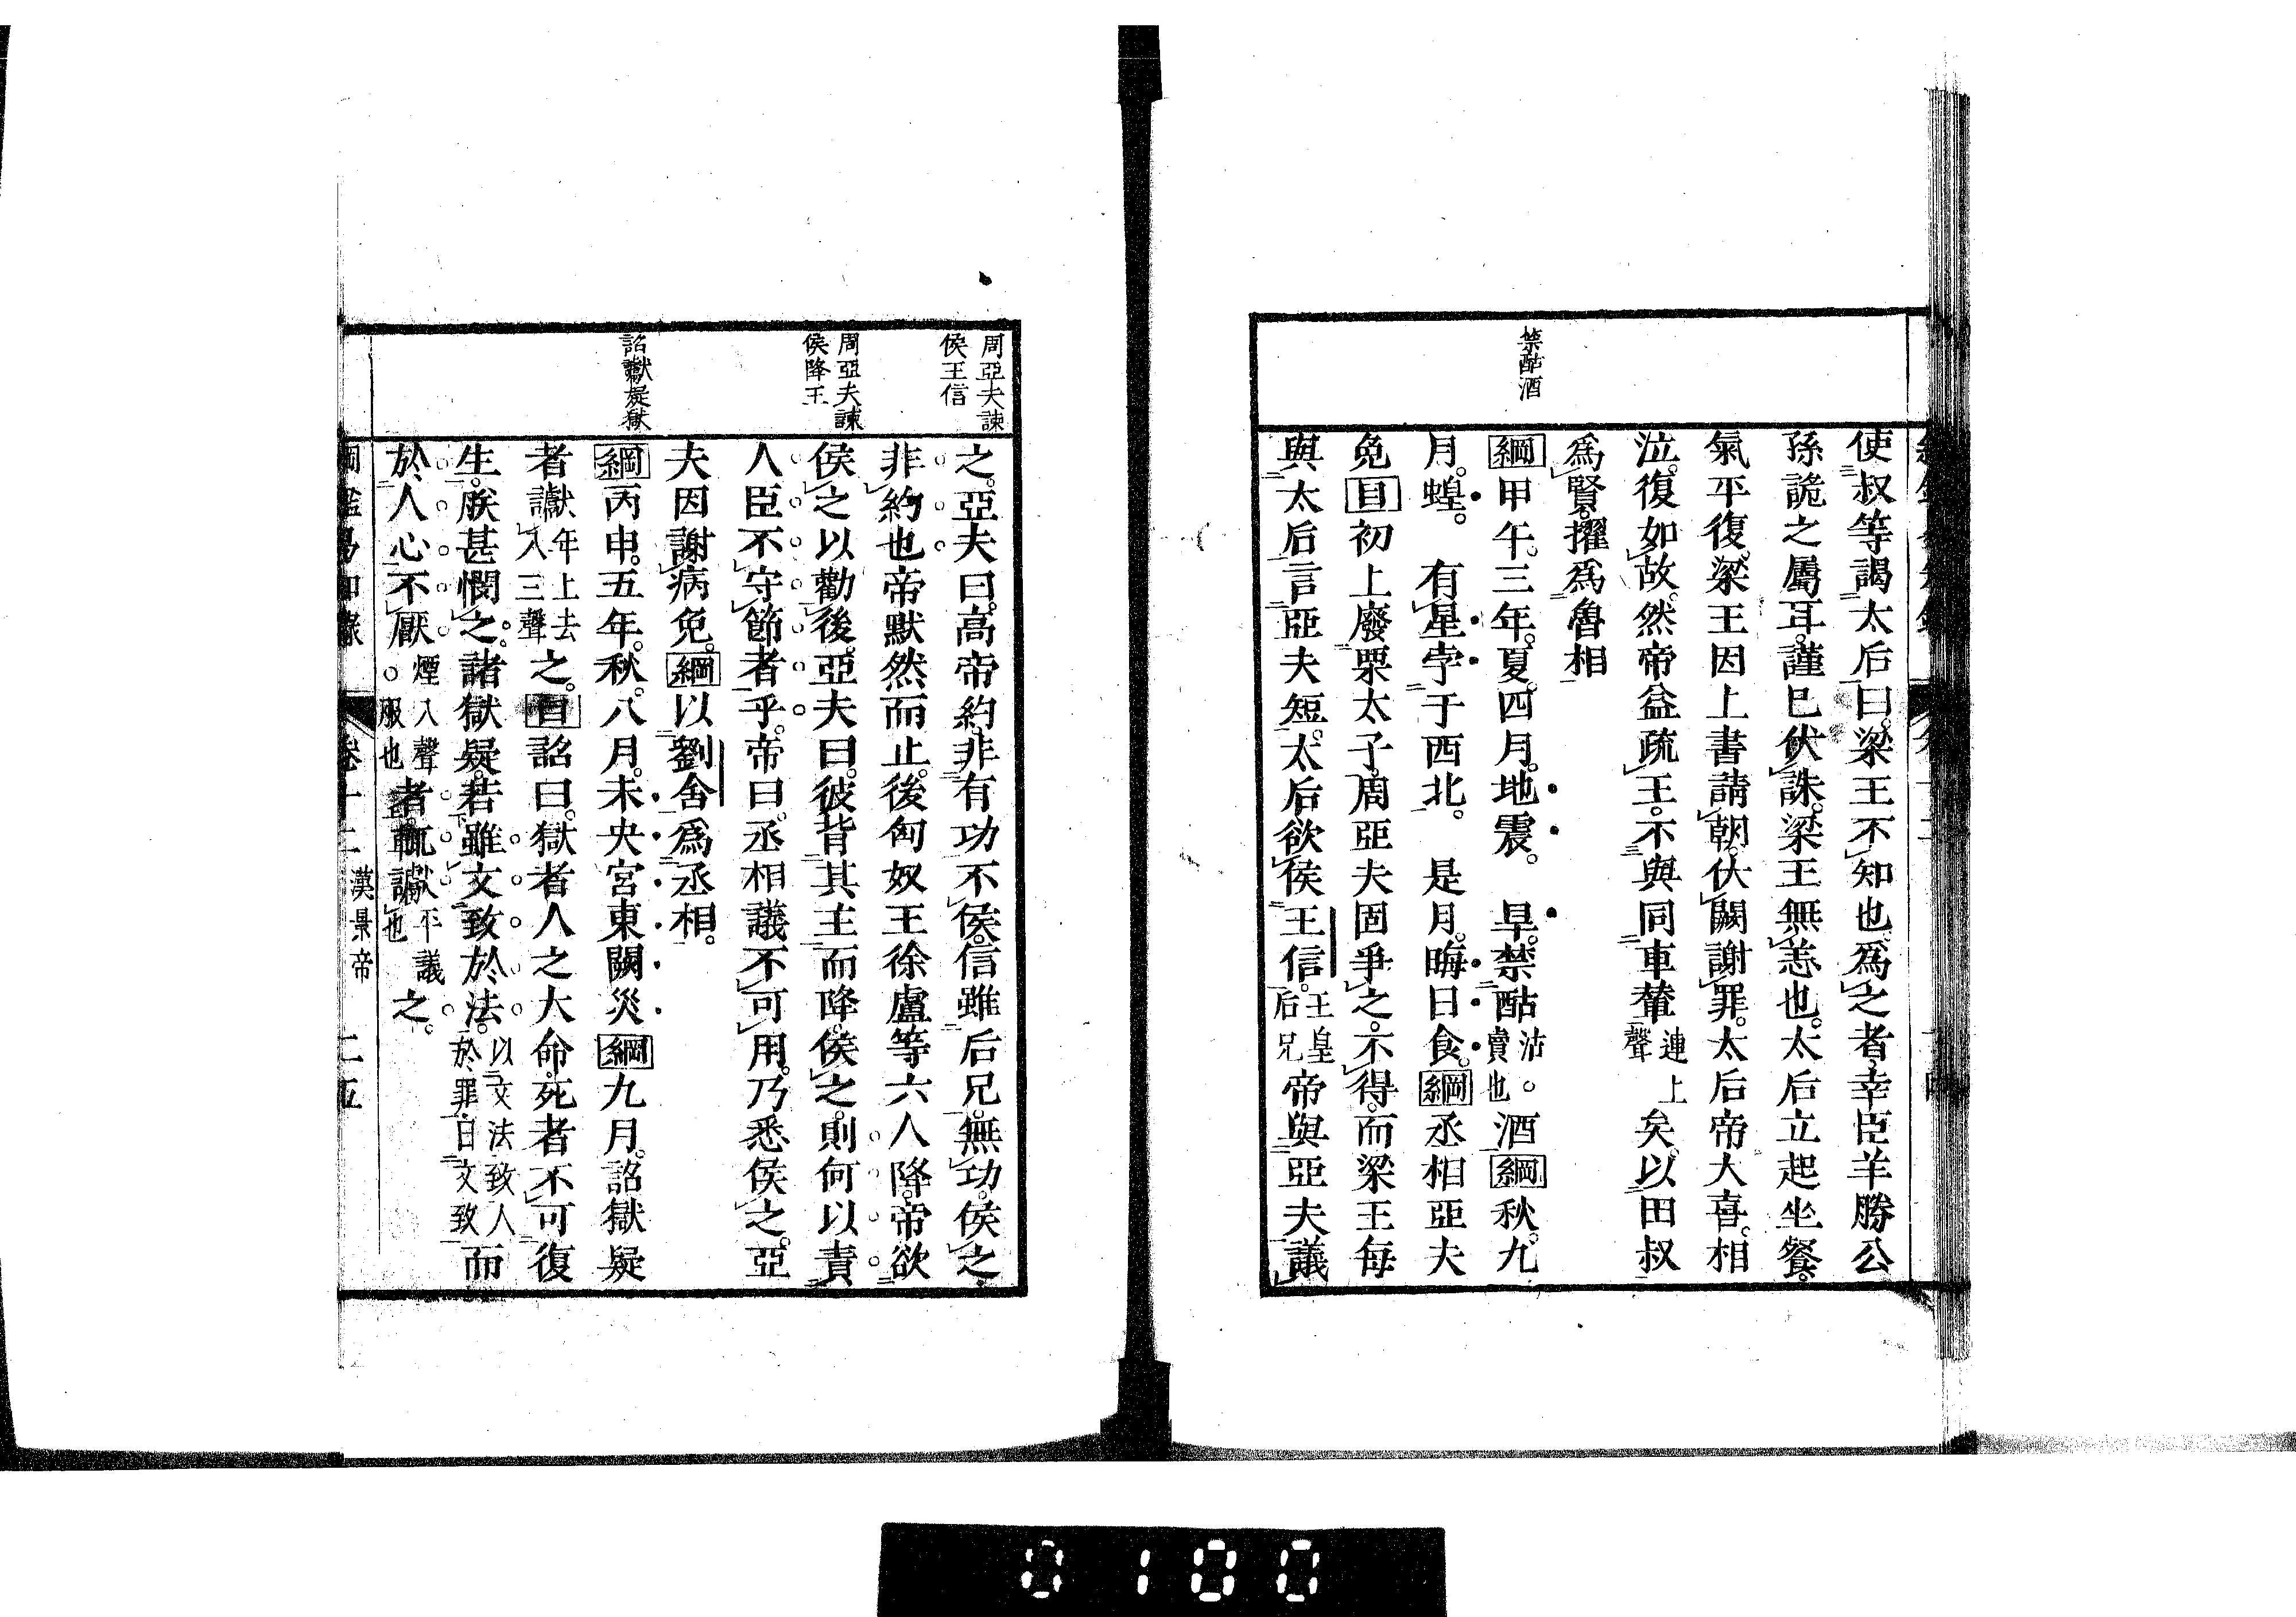 禁酤酒
使叔等謁太后曰。梁王不知也。爲之者。幸臣羊勝公
孫詭之屬耳。謹已伏誅。梁王無恙也。太后立起坐餐。
氣平復。梁王因上書請朝。伏闕謝罪。太后帝大喜。相
泣。復如故。然帝益疏王。不與同車輦連上聲矣。以田叔
爲賢。擢爲魯相
綱甲午。三年。夏。四月。地震。 旱。禁酤沽。賣也酒綱秋。九
月。蝗。 有星孛于西北。 是月。晦。日食。綱丞相亞夫
免目初上廢栗太子。周亞夫固爭之。不得。而梁王每
與太后言亞夫短。太后欲侯王信。王皇后兄帝與亞夫議
周亞夫諫
侯王信
周亞夫諫
侯降王
詔讞疑獄
之。亞夫曰。高帝約。非有功不侯。信雖后兄。無功。侯之。
非約也帝默然而止。後匈奴王徐盧等六人降。帝欲
侯之以勸後。亞夫曰。彼背其主而降。侯之。則何以責
人臣不守節者乎。帝曰。丞相議不可用。乃悉侯之。亞
夫因謝病免。綱以劉舍爲丞相。
綱丙申。五年。秋。八月。未央宮東闕災綱九月。詔獄疑
者讞年上去入三聲之。目詔曰。獄者人之大命。死者不可復
生。朕甚憫之。諸獄疑。若雖文致於法。以文法致人於罪曰文致而
於人心不厭煙入聲。服也者。輒讞平議也之。
綱鑑易知錄 卷十二 漢景帝 二五